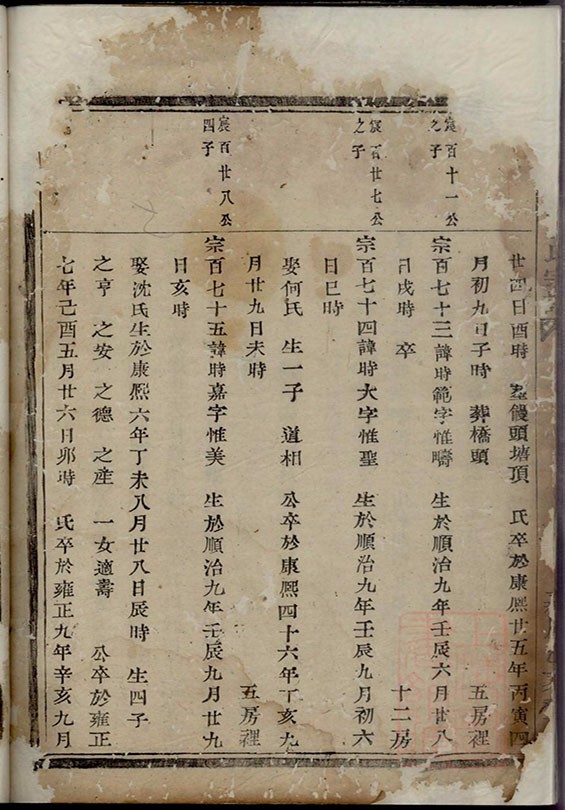 廿四日酉時 塟饅頭塘頂 氏卒於康熙廿五年丙寅四
月初九日子時 葬橋頭 五房裡
宸百十一公
之子
宗百七十三諱時範字惟疇 生於順治九年壬辰六月廿八
日戌時 卒 十二房
宸百廿七公
之子
宗百七十四諱時大字惟聖 生於順治九年壬辰九月初六
日巳時
娶何氏 生一子 道相 公卒於康熙四十六年丁亥九
月廿九日未時 五房裡
宸百廿八公
四子
宗百七十五諱時嘉字惟美 生於順治九年壬辰九月廿九
日亥時
娶沈氏生於康熙六年丁未八月廿八日辰時 生四子
之亨 之安 之德 之產 一女適壽 公卒於雍正
七年己酉五月廿六日卯時 氏卒於雍正九年辛亥九月